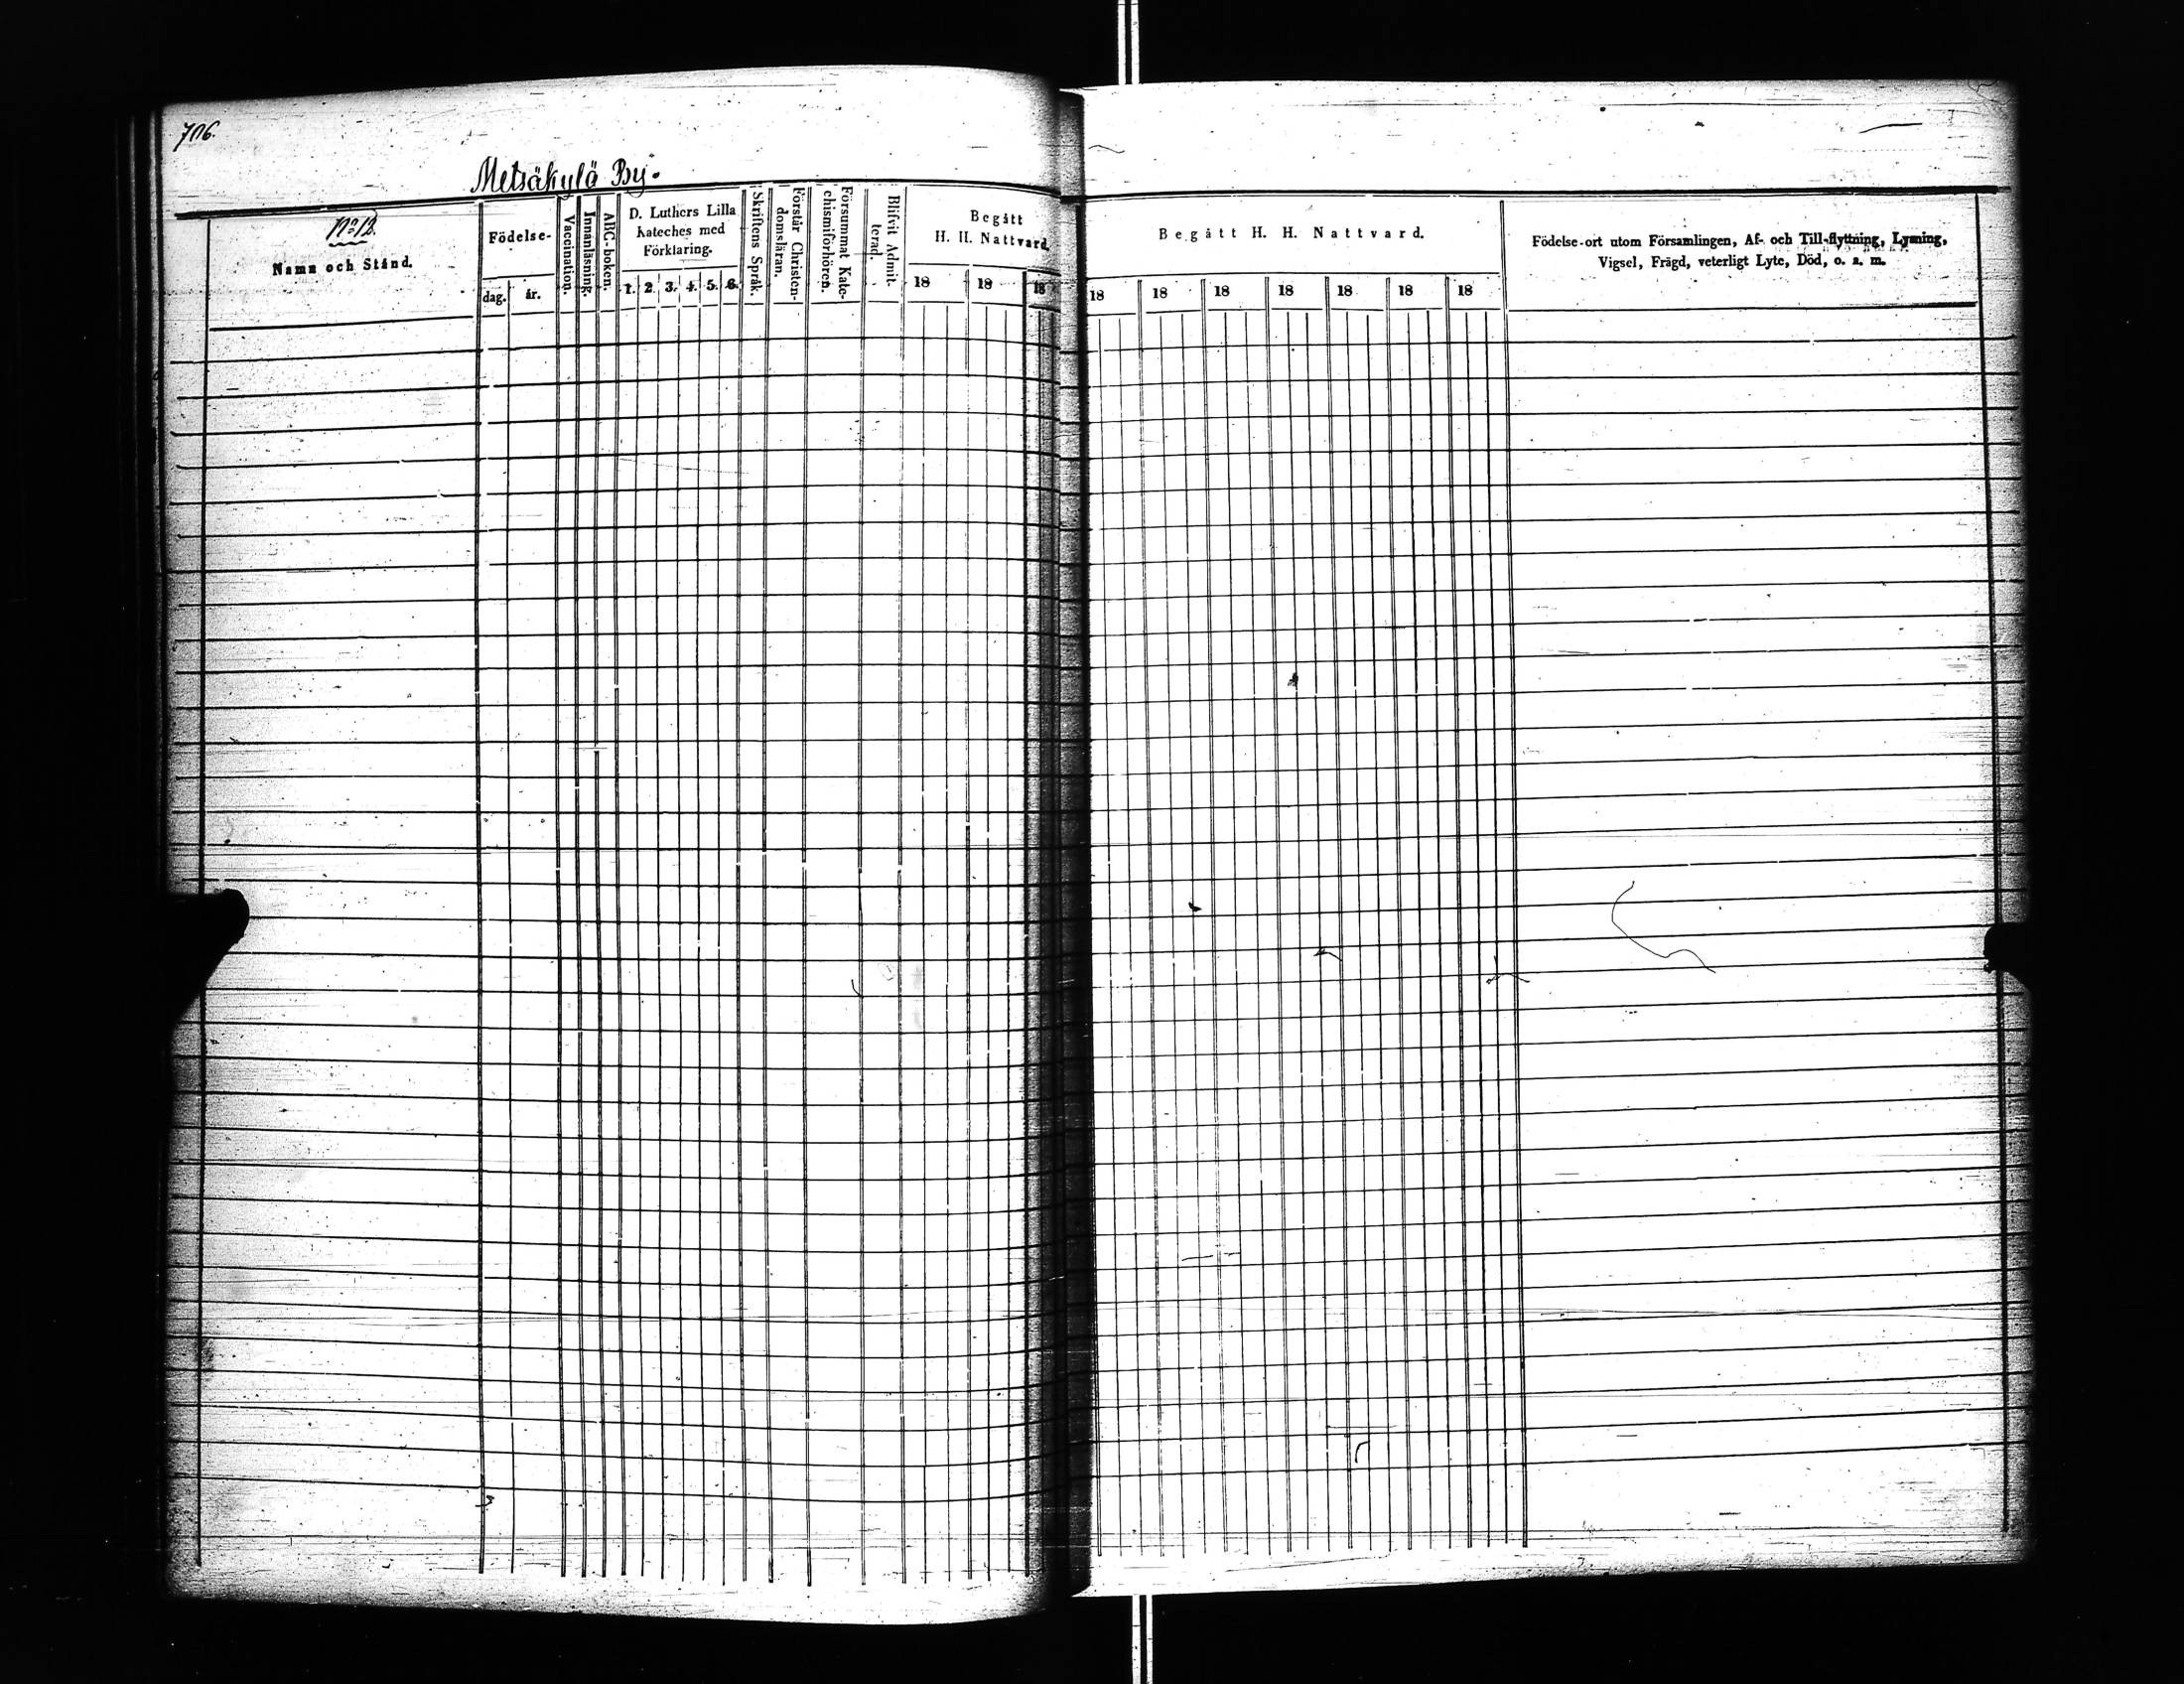 706.
Metsäkylä By.
No 12.
Namn och Stånd.
Födelse-
dag. år.
Vaccination.
Innanläsning.
ABC-boken.
D. Luthers Lilla
Kateches med
Förklaring.
1. 2. 3. 4. 5. 6.
Skriftens Språk.
Förstår Christen-
domsläran.
Försummat Kate-
chismiförhören.
Blifvit Admit-
terad.
Begått
H. H. Nattvard.
18 18 18
Begått H. H. Nattvard.
18 18 18 18 18 18 18
Födelse-ort utom Församlingen, Af- och Till-flyttning, Lysning,
Vigsel, Frägd, veterligt Lyte, Död, o. s. m.